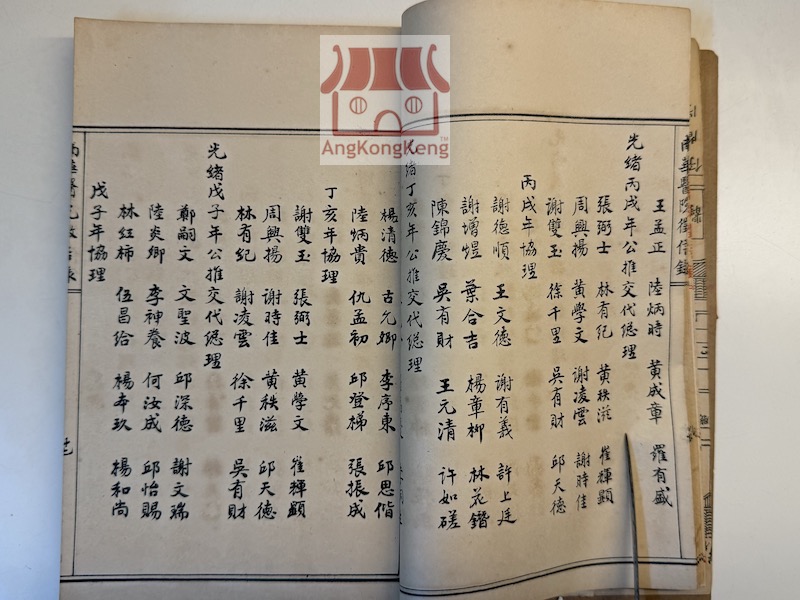 AngKongKeng™
南華醫院徵信錄
王孟正 陸炳時 黃成章 羅有盛
光緒丙戌年公推交代總理
張弼士 林有紀 黃秩滋 崔輝顯
周興揚 黃學文 謝凌雲 謝時佳
謝雙玉 徐千里 吳有財 邱天德
丙戌年協理
謝德順 王文德 謝有義 許上廷
謝增煜 葉合吉 楊章柳 林花鐕
陳錦慶 吳有財 王元清 许如磋
光緒丁亥年公推交代總理
楊清德 古允卿 李序東 邱思偕
陸炳貴 仇孟初 邱登梯 張振成
丁亥年協理
謝雙玉 張弼士 黃學文 崔輝顯
周興揚 謝時佳 黃秩滋 邱天德
林有紀 謝凌雲 徐千里 吳有財
光緒戊子年公推交代總理
鄭嗣文 文聖波 邱深德 謝文瑞
陸炎卿 李神養 何汝成 邱怡賜
林红柿 伍昌给 楊本玖 楊和尚
戊子年協理
南華醫院徵信錄